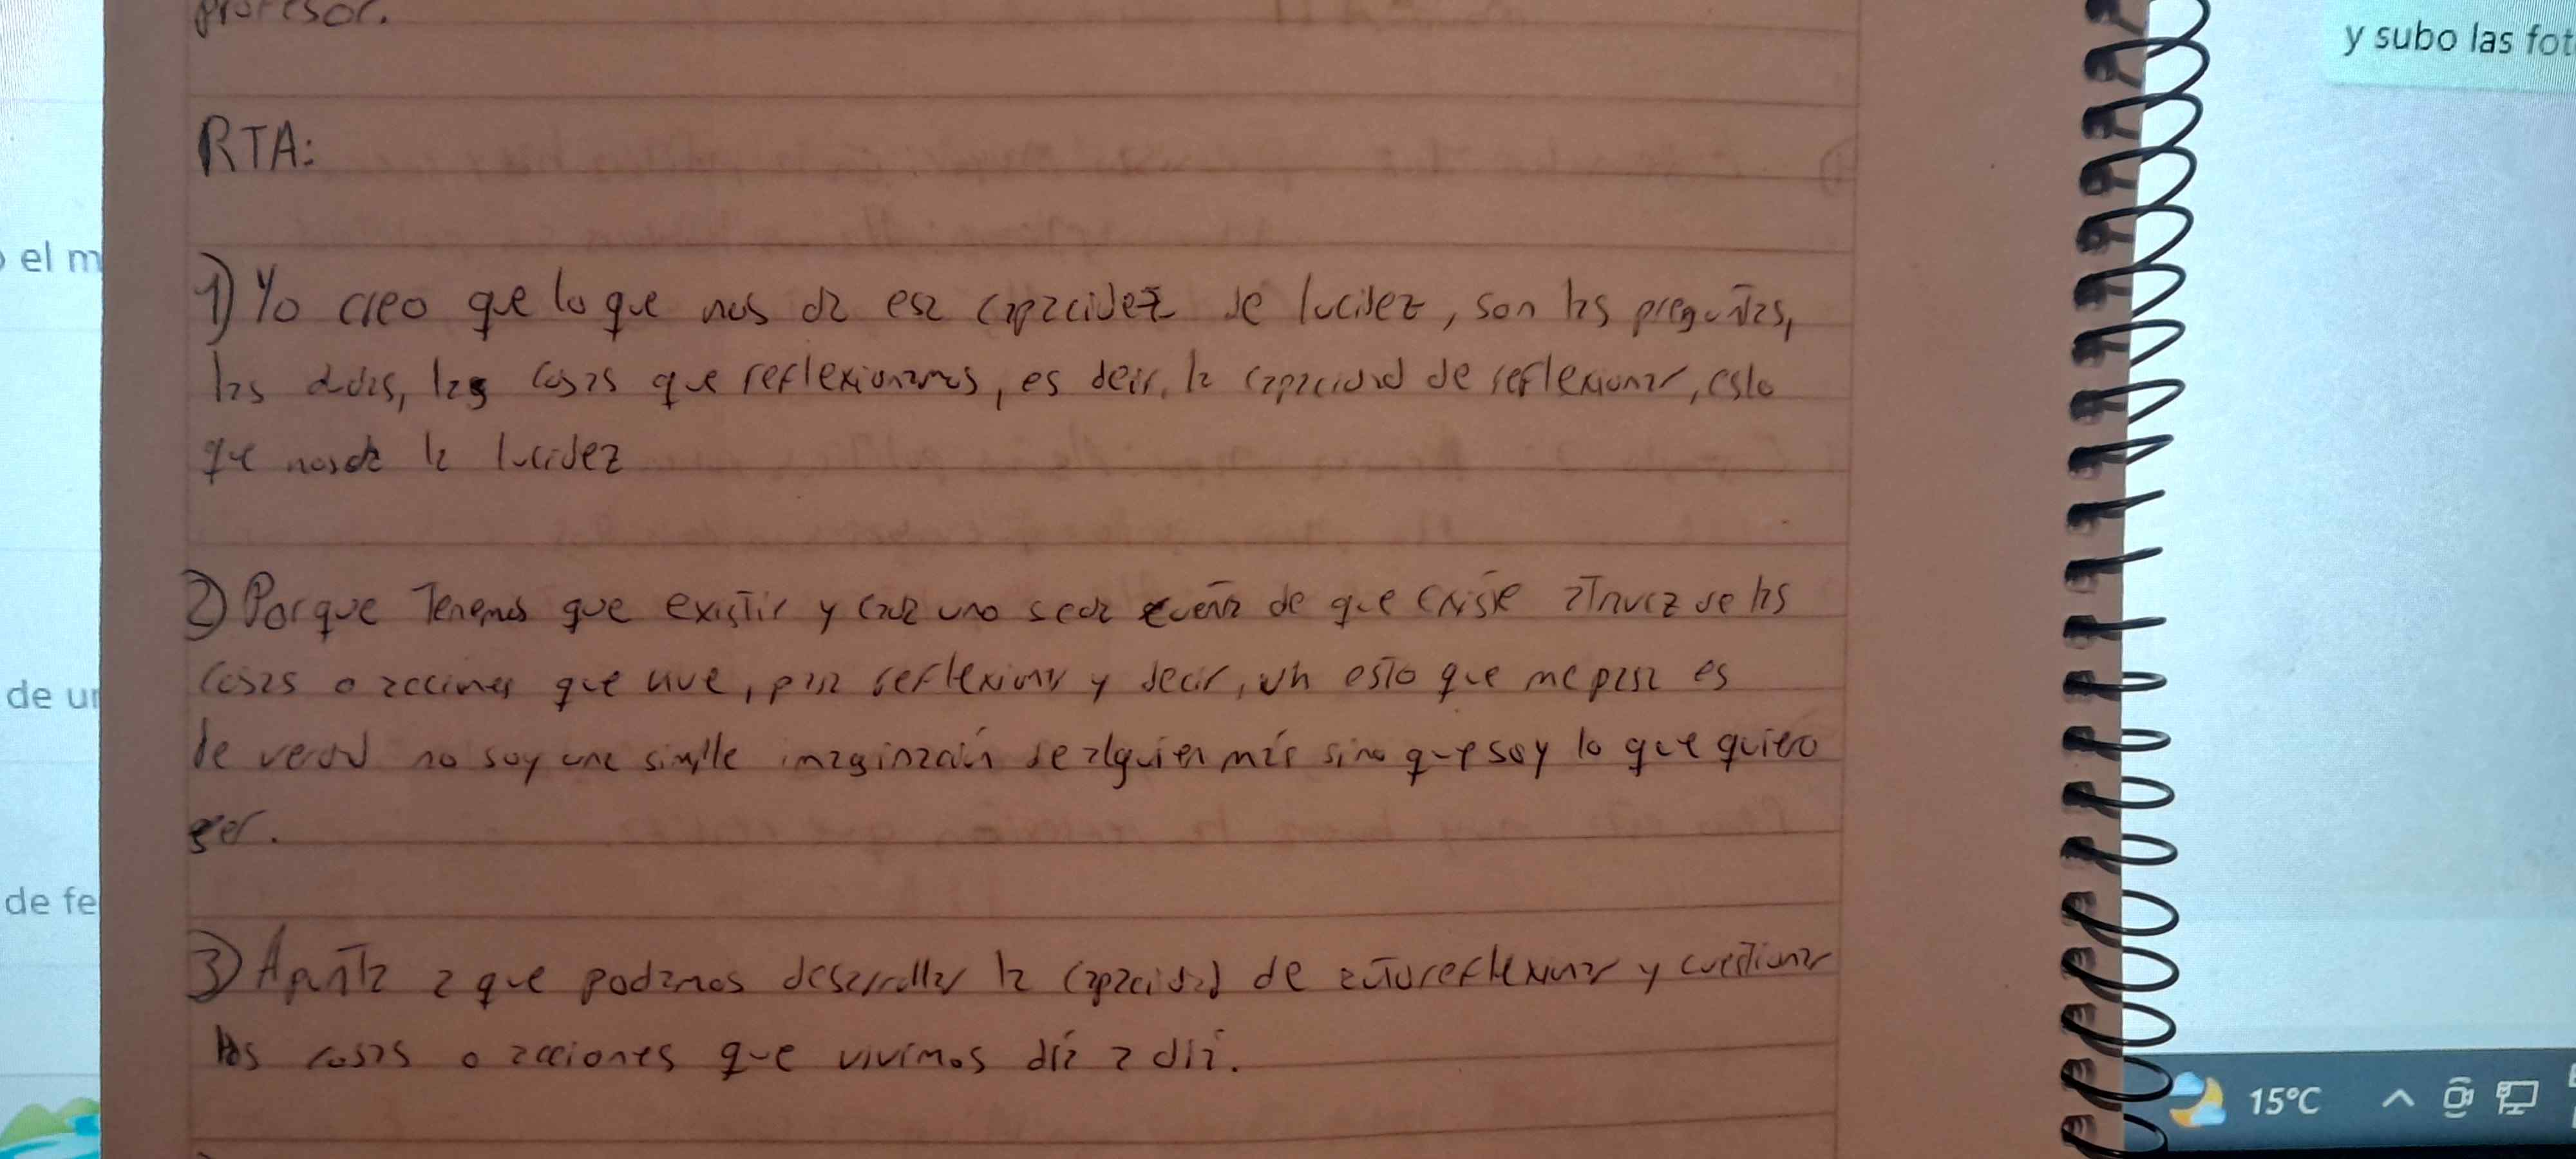 profesor.
y subo las fot
RTA:
el m
1) Yo creo que lo que nos da esa capacidez de lucidez, son las preguntas,
las dudas, las cosas que reflexionamos, es deir, la capacidad de reflexionar, esto
que nos da la lucidez
2) Porque Tenemos que existir y cada uno se da cuenta de que existe atravez de las
cosas o acciones que vive, para reflexionar y decir, uh esto que me pasa es
de verdad no soy una simple imaginación de alguien más sino que soy lo que quiero
ser.
de ur
de fe
3) Apunta a que podamos desarrollar la capacidad de autoreflexionar y cuestionar
las cosas o acciones que vivimos día a día.
15°C